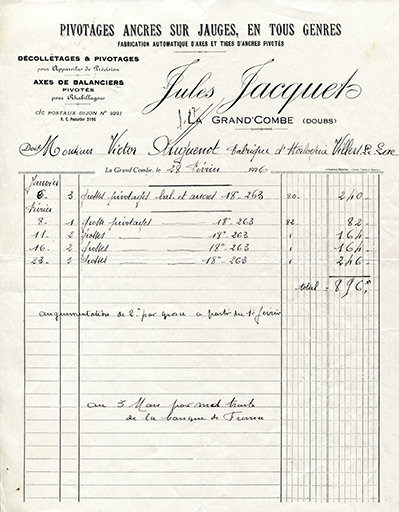 PIVOTAGES ANCRES SUR JAUGES, EN TOUS GENRES
FABRICATION AUTOMATIQUE D'AXES ET TIGES D'ANCRES PIVOTÉS
DÉCOLLETAGES & PIVOTAGES
pour Appareils de Précision
AXES DE BALANCIERS
PIVOTÉS
pour Rhabillages
C/C POSTAUX DIJON N° 9297
R. C. Pontarlier 3196
Jules Jacquet
LA GRAND'COMBE (DOUBS)
Doit Monsieur Victor Anguenot fabrique d'Horlogerie Villers le Lac
La Grand'Combe, le 28 février 1926
Janvier
6 3 grosses pivotages bal et ancres 18''' 263 80 240
février
8 1 grosse pivotages 18''' 263 82 82
11 2 grosses 18''' 263 164
16 2 grosses 18''' 263 164
23 3 grosses 18''' 263 246
total = 896
augumentation de 2 par grosse a partir du 1 février
au 3 Mars par met traite
de la banque de France